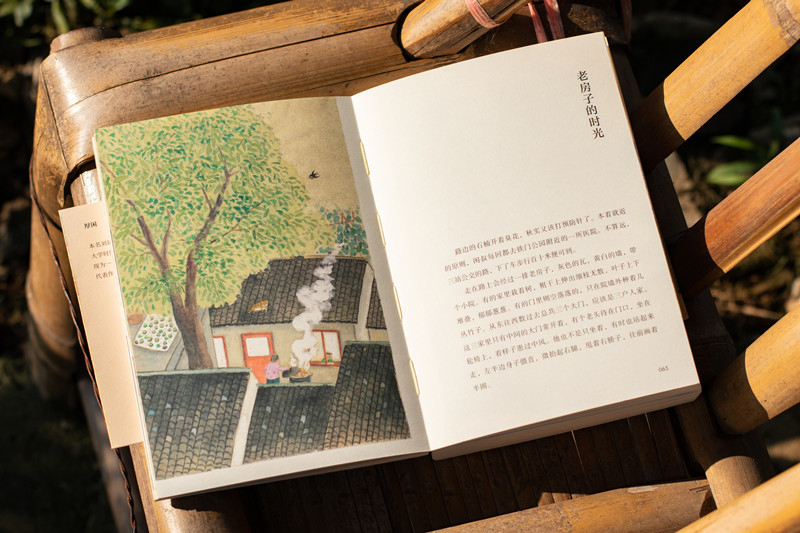 厚闲
大学时
代表作
老房子的时光
路边的石楠开着臭花，秋实又该打预防针了。本着就近
的原则，闲叔每回都去铁门公园附近的一所医院。不算远，
三站公交的路，下了车步行百十米便可到。
走在路上会经过一排老房子，灰色的瓦，黄白的墙，带
个小院。有的家里栽着树，粗干上伸出细枝无数，叶子上下
堆叠，郁郁葱葱。有的门里尘落落的，只在院墙外种着几
丛竹子。从东往西数过去总共三个大门，应该是三户人家。
这三家里只有中间的大门常开着，有个老头待在门口，坐在
轮椅上，看样子患过中风。他也不是只坐着，有时也站起来
走，左半边身子僵直，微抬起右腿，甩着右膀子，往前画着
半圆。
065